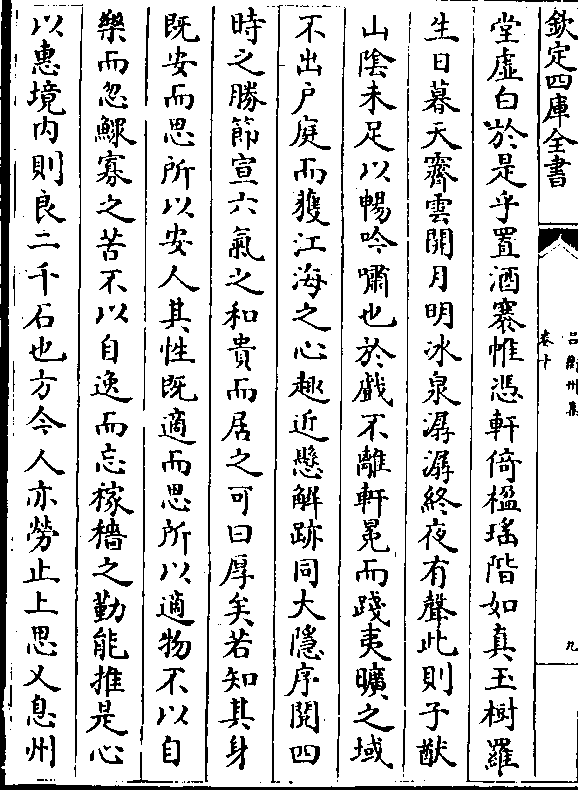 欽定四庫全書
呂衡州集
卷十
九
堂虛白於是乎置酒褰帷憑軒倚楹瑤階如真玉樹羅
生日暮天霽雲開月明冰泉潺潺終夜有聲此則子猷
山陰未足以暢吟嘯也於戲不離軒冕而踐夷曠之域
不出戶庭而獲江海之心趣近懸解跡同大隱序閱四
時之勝節宣六氣之和貴而居之可曰厚矣若知其身
既安而思所以安人其性既適而思所以適物不以自
樂而忽鰥寡之苦不以自逸而忘稼穡之勤能推是心
以惠境内則良二千石也方今人亦勞止上思乂息州